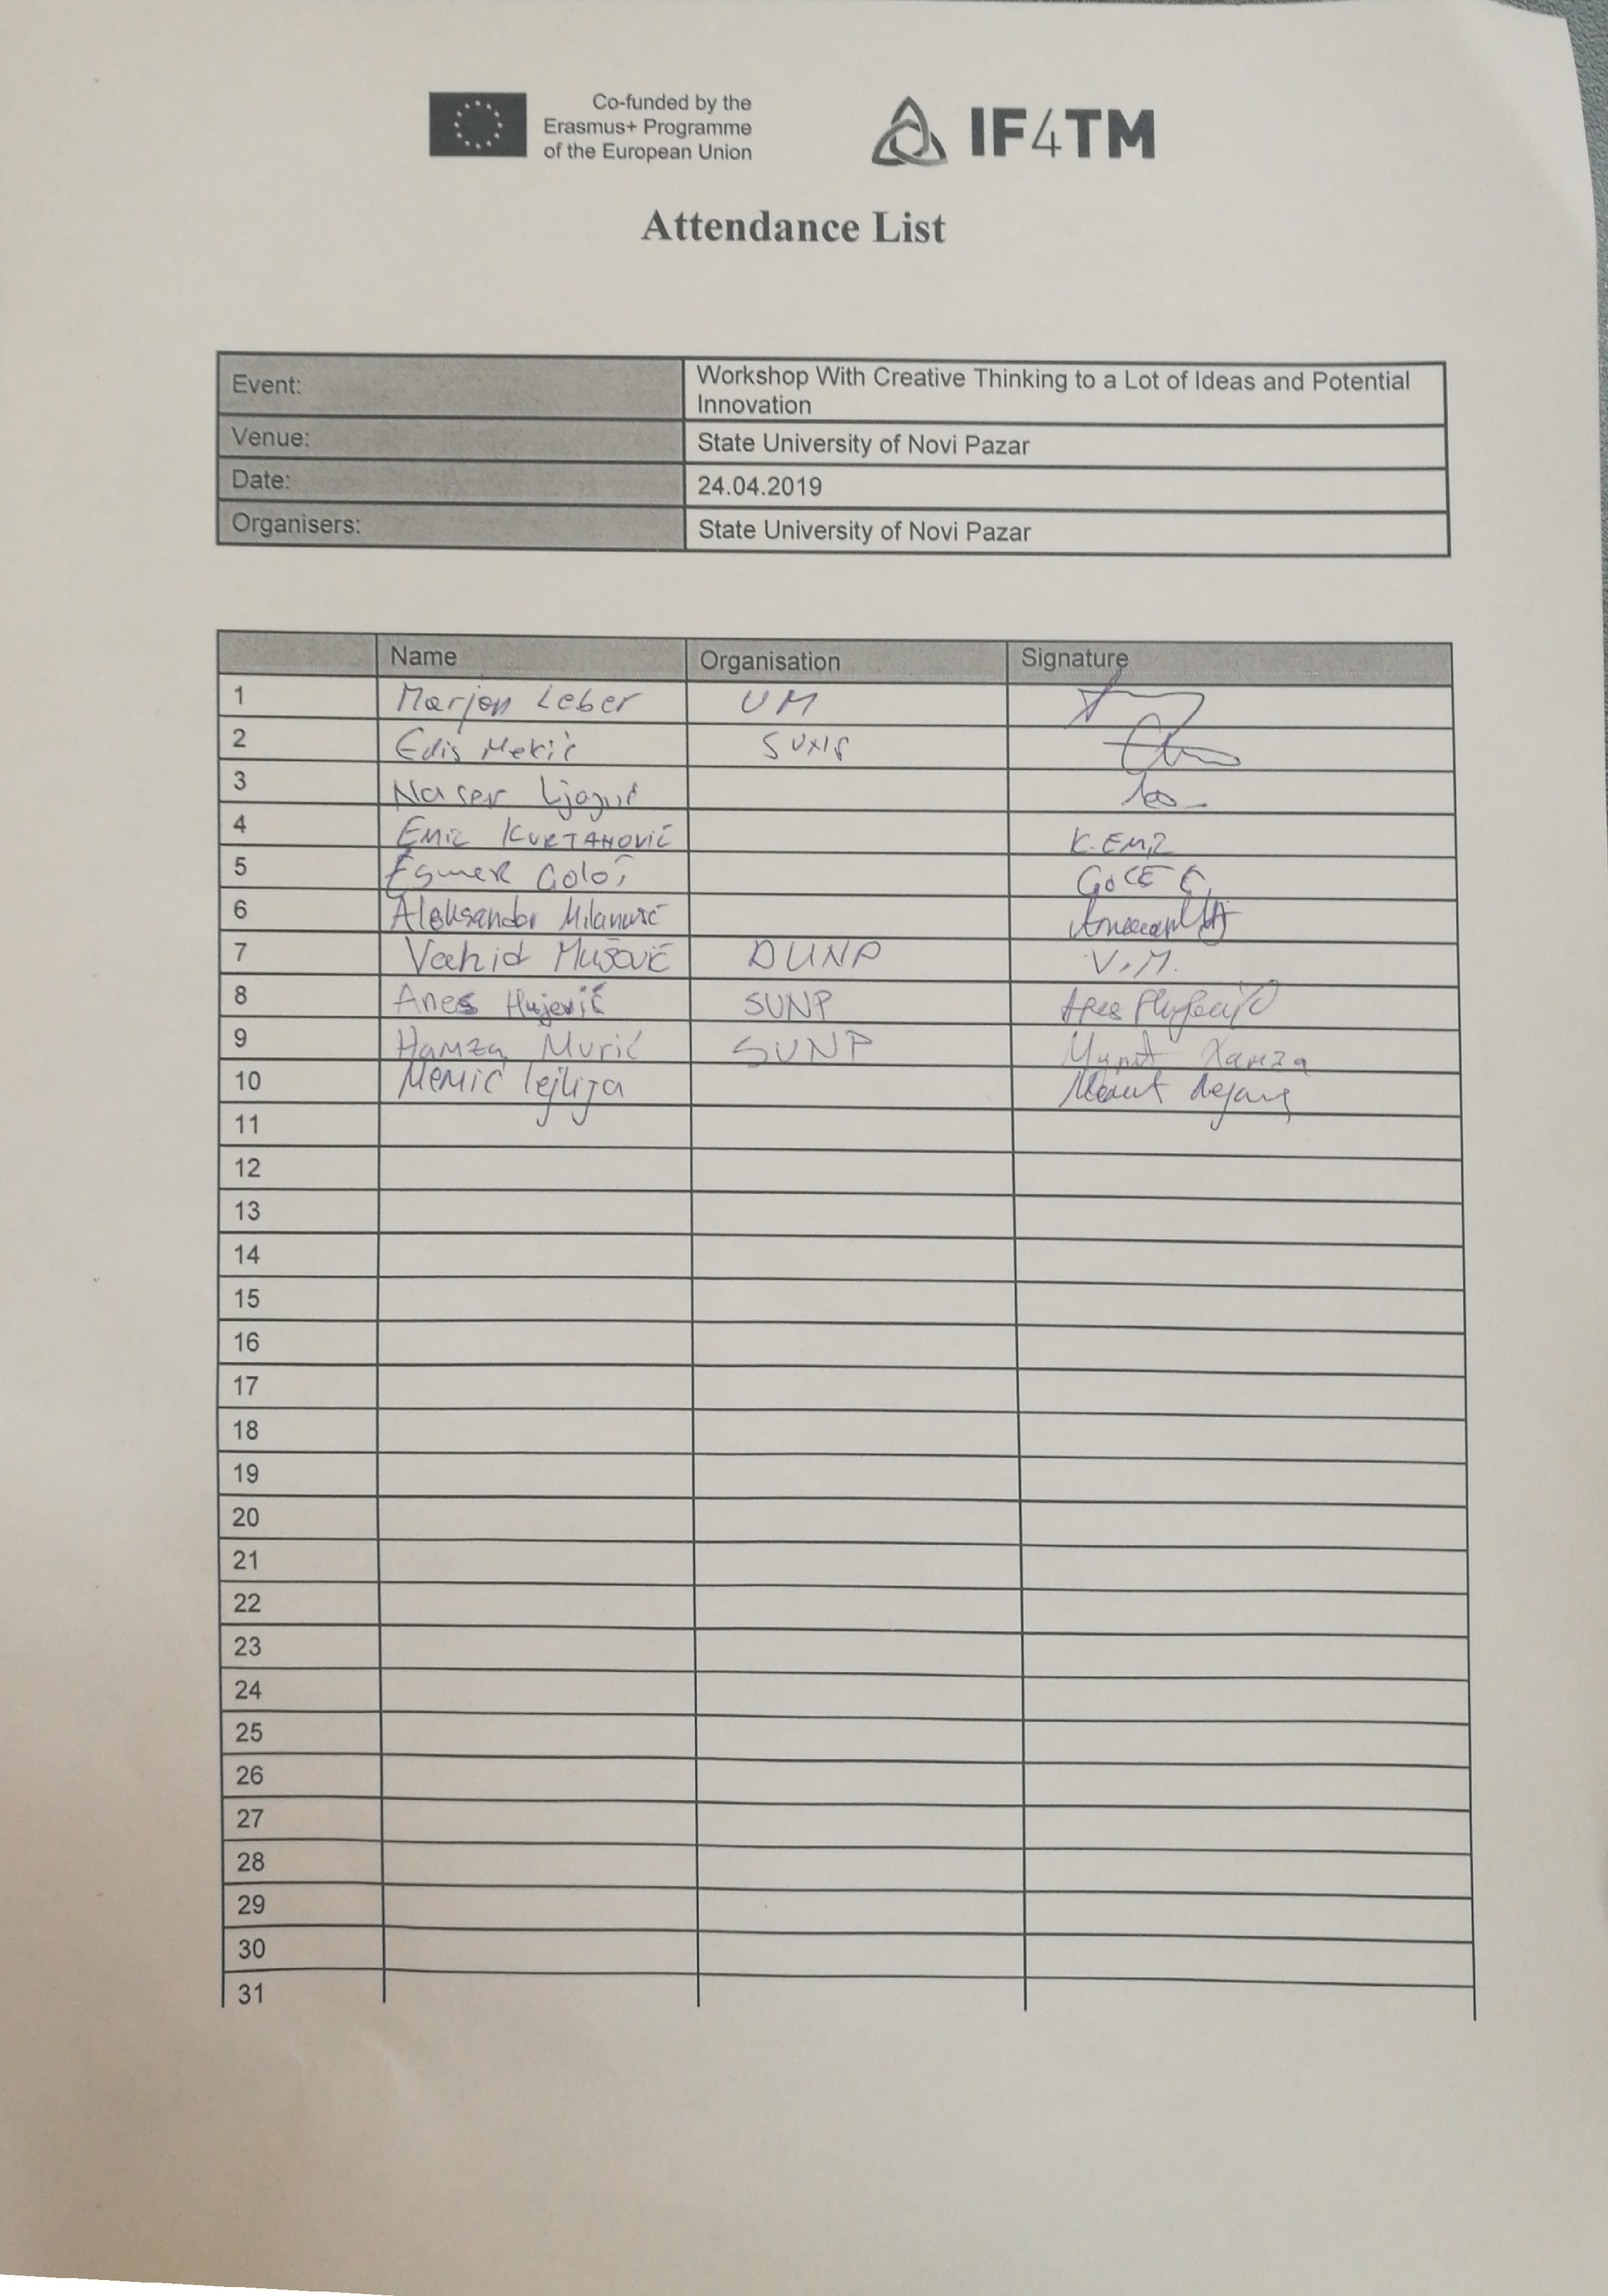 Co-funded by the
Erasmus+ Programme
of the European Union
IF4TM
Attendance List
Event: Workshop With Creative Thinking to a Lot of Ideas and Potential
Innovation
Venue: State University of Novi Pazar
Date: 24.04.2019
Organisers: State University of Novi Pazar
Name Organisation Signature
1 Marjan Leber UM
2 Edis Mekić
3 Naser
4 EMIL KURTANOVIĆ K. EMIL
5
6 Aleksandar Milanović
7 Vahid Mušović DUNP V.M.
8 Anes Hujević SUNP
9 Hamza Murić SUNP Хамза
10 Memić lejlija
11
12
13
14
15
16
17
18
19
20
21
22
23
24
25
26
27
28
29
30
31